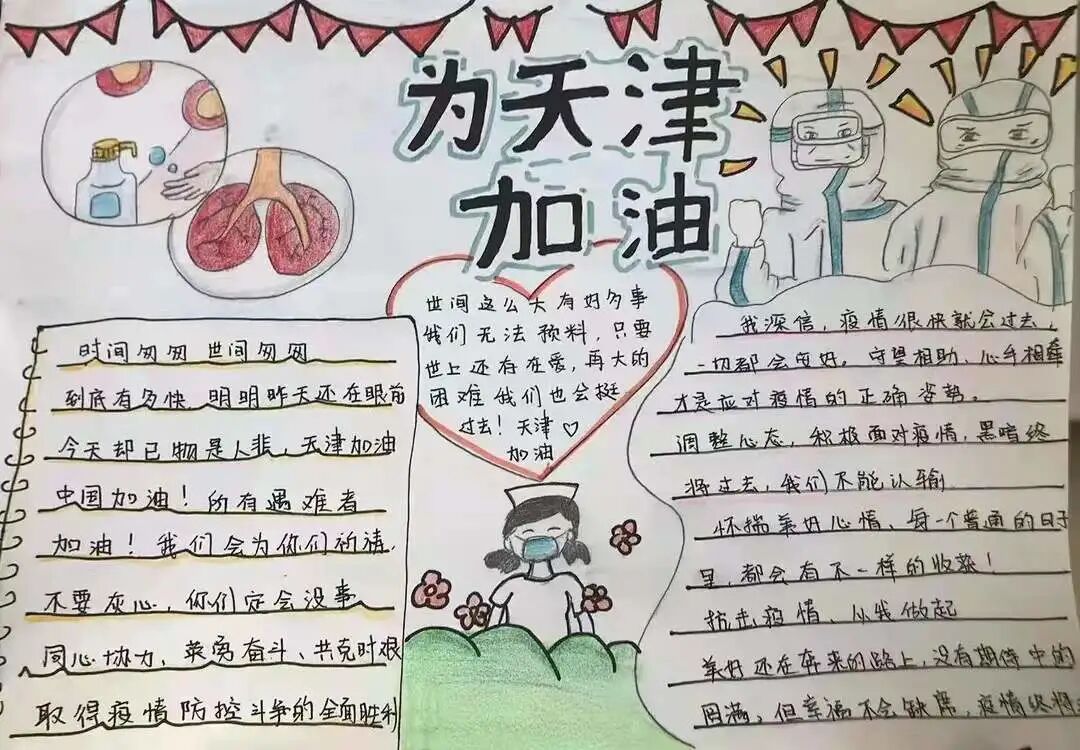 为天津
加油
时间匆匆 世间匆匆
到底有多快 明明昨天还在眼前
今天却已物是人非，天津加油
中国加油！所有遇难者
加油！我们会为你们祈祷，
不要灰心，你们定会没事
同心协力、英勇奋斗、共克时艰
取得疫情防控斗争的全面胜利
世间这么大有好多事
我们无法预料，只要
世上还存在爱，再大的
困难我们也会挺
过去！天津♡
加油
我深信，疫情很快就会过去，
一切都会安好。守望相助、心手相牵
才是应对疫情的正确姿势。
调整心态，积极面对疫情，黑暗终
将过去，我们不能认输
怀揣美好心情，每一个普通的日子
里，都会有不一样的收获！
抗击疫情、从我做起
美好还在奔来的路上，没有期待中的
圆满，但幸福不会缺席，疫情终将